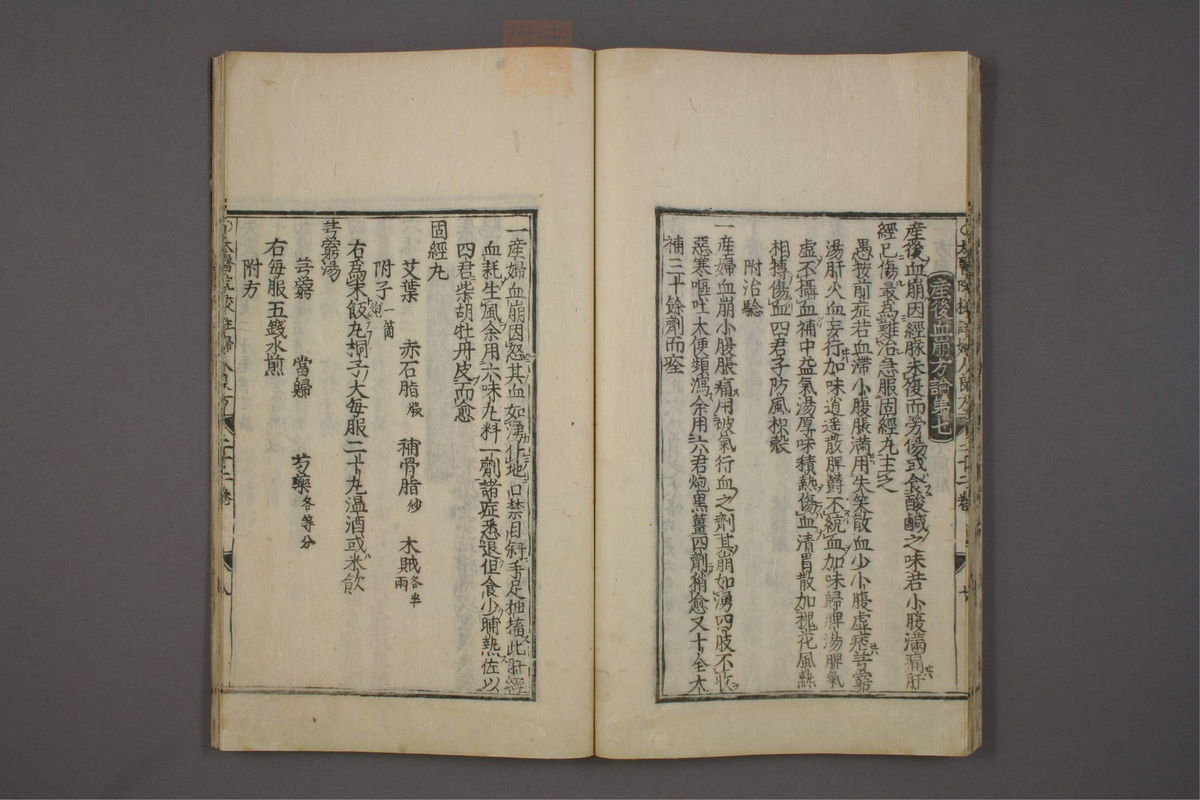 産後血崩方論第七
産後血崩因經脉未復而勞傷或食酸鹹之味若小腹滿痛肝
經已傷最爲難治急服固經丸主之
愚按前症若血滯小腹脹滿用失笑散血少小腹虛痞芎藭
湯肝火血妄行加味逍遙散脾欝不統血加味歸脾湯脾氣
虛不攝血補中益氣湯厚味積熱傷血清胃散加槐花風熱
相搏傷血四君子防風枳殼
附治驗
一産婦血崩小腹脹痛用破氣行血之劑其崩如湧四肢不收
惡寒嘔吐大便頻瀉余用六君炮黑薑四劑稍愈又十全大
補三十餘劑而痊
一産婦血崩因怒其血如湧仆地口禁目斜手足抽搐此肝經
血耗生風余用六味丸料一劑諸症悉退但食少晡熱佐以
四君柴胡牡丹皮而愈
固經丸
艾葉 赤石脂煅 補骨脂炒 木賊各半兩
附子一箇炮
右爲末飯丸桐子大每服二十丸温酒或米飲
芎藭湯
芎藭 當歸 芍藥各等分
右每服五錢水煎
附方